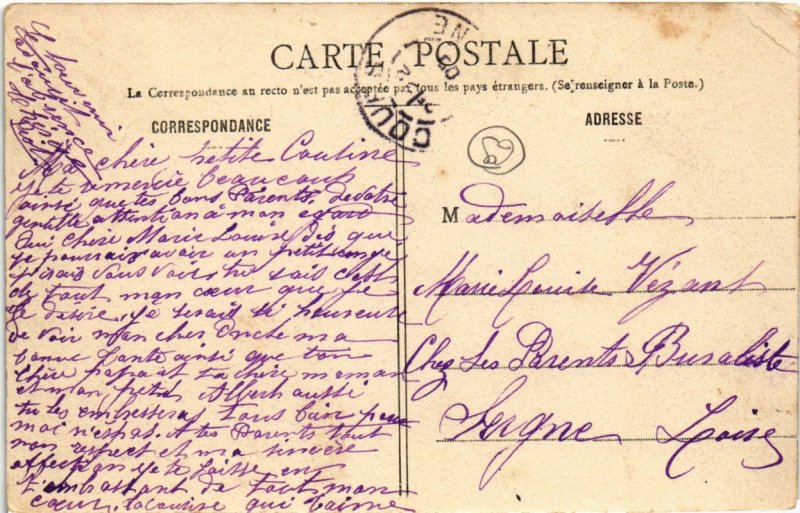 CARTE POSTALE
La Correspondance au recto n'est pas acceptée par tous les pays étrangers. (Se renseigner à la Poste.)
CORRESPONDANCE
ADRESSE
Ma chère petite Cousine
je te remercie beaucoup
ainsi que tes bons Parents, de votre
gentille attention à mon egard
Oui chère Marie Louise dès que
je pourrais avoir un petit congé
j'irais vous voir, tu sais c'est
de tout mon cœur que je
le desire, je serais si heureuse
de voir mon cher Oncle ma
bonne Tante ainsi que ton
chère papa et ta chère maman
et mon petit Albert aussi
tu les embrasseras tous bien pour
moi n'est pas. A tes Parents tout
mon respect et ma sincère
affection je te laisse en
t'embrassant de tout mon
cœur, ta cousine qui t'aime
Mademoiselle
Marie Louise Vézant
Chez Ses Parents Buraliste
Loire